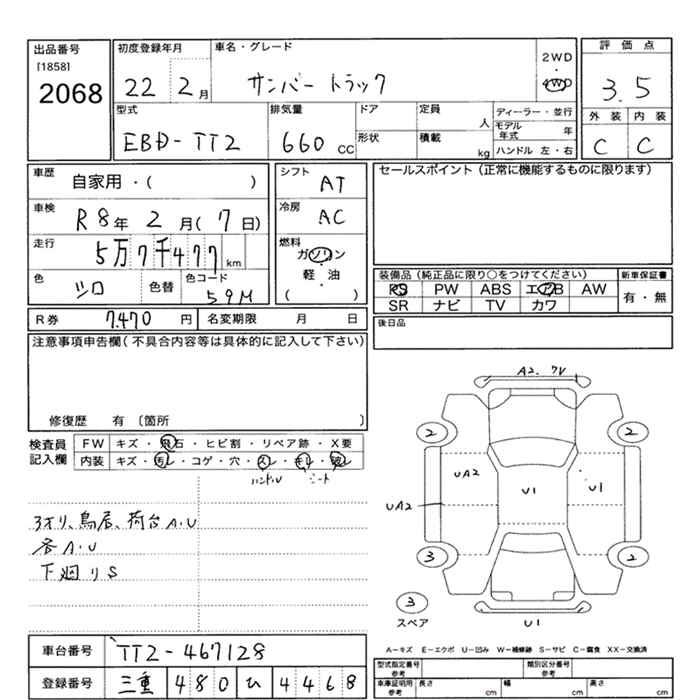 出品番号
[1858]
2068
初度登録年月
22 2月
車名・グレード
サンバー トラック
2WD
・
4WD
評価点
3.5
型式
EBD-TT2
排気量
660 CC
ドア
形状
定員
人
積載
kg
ディーラー・並行
モデル年式 年
ハンドル 左・右
外装 内装
C C
車歴
自家用・( )
車検
R8年 2月(7日)
走行
5万7千477km
色
シロ
色替
色コード
59M
シフト
AT
冷房
AC
燃料
ガソリン
・
軽油
( )
セールスポイント(正常に機能するものに限ります)
装備品(純正品に限り○をつけてください)
新車保証書
PS PW ABS エアB AW
有・無
SR ナビ TV カワ
R券 7.470 円
名変期限 月 日
後日品
注意事項申告欄(不具合内容等は具体的に記入して下さい)
修復歴 有 〔箇所 〕
検査員
記入欄
FW キズ・飛石・ヒビ割・リペア跡・X要
内装 キズ・汚レ・コゲ・穴・スレ・キレ・破レ
ハンドル シート
3オリ、鳥居、荷台A・U
各A・U
下廻りS
A2. 7V
2 2
UA2
U1
U1
UA2
3 2
3
スペア
U1
A-キズ E-エクボ U-凹み W-補修跡 S-サビ C-腐食 XX-交換済
車台番号
TT2-467128
登録番号
三重 480 ひ 4468
型式指定番号
参考
類別区分番号
参考
車庫証明用
参考
長さ cm
幅 cm
高さ cm